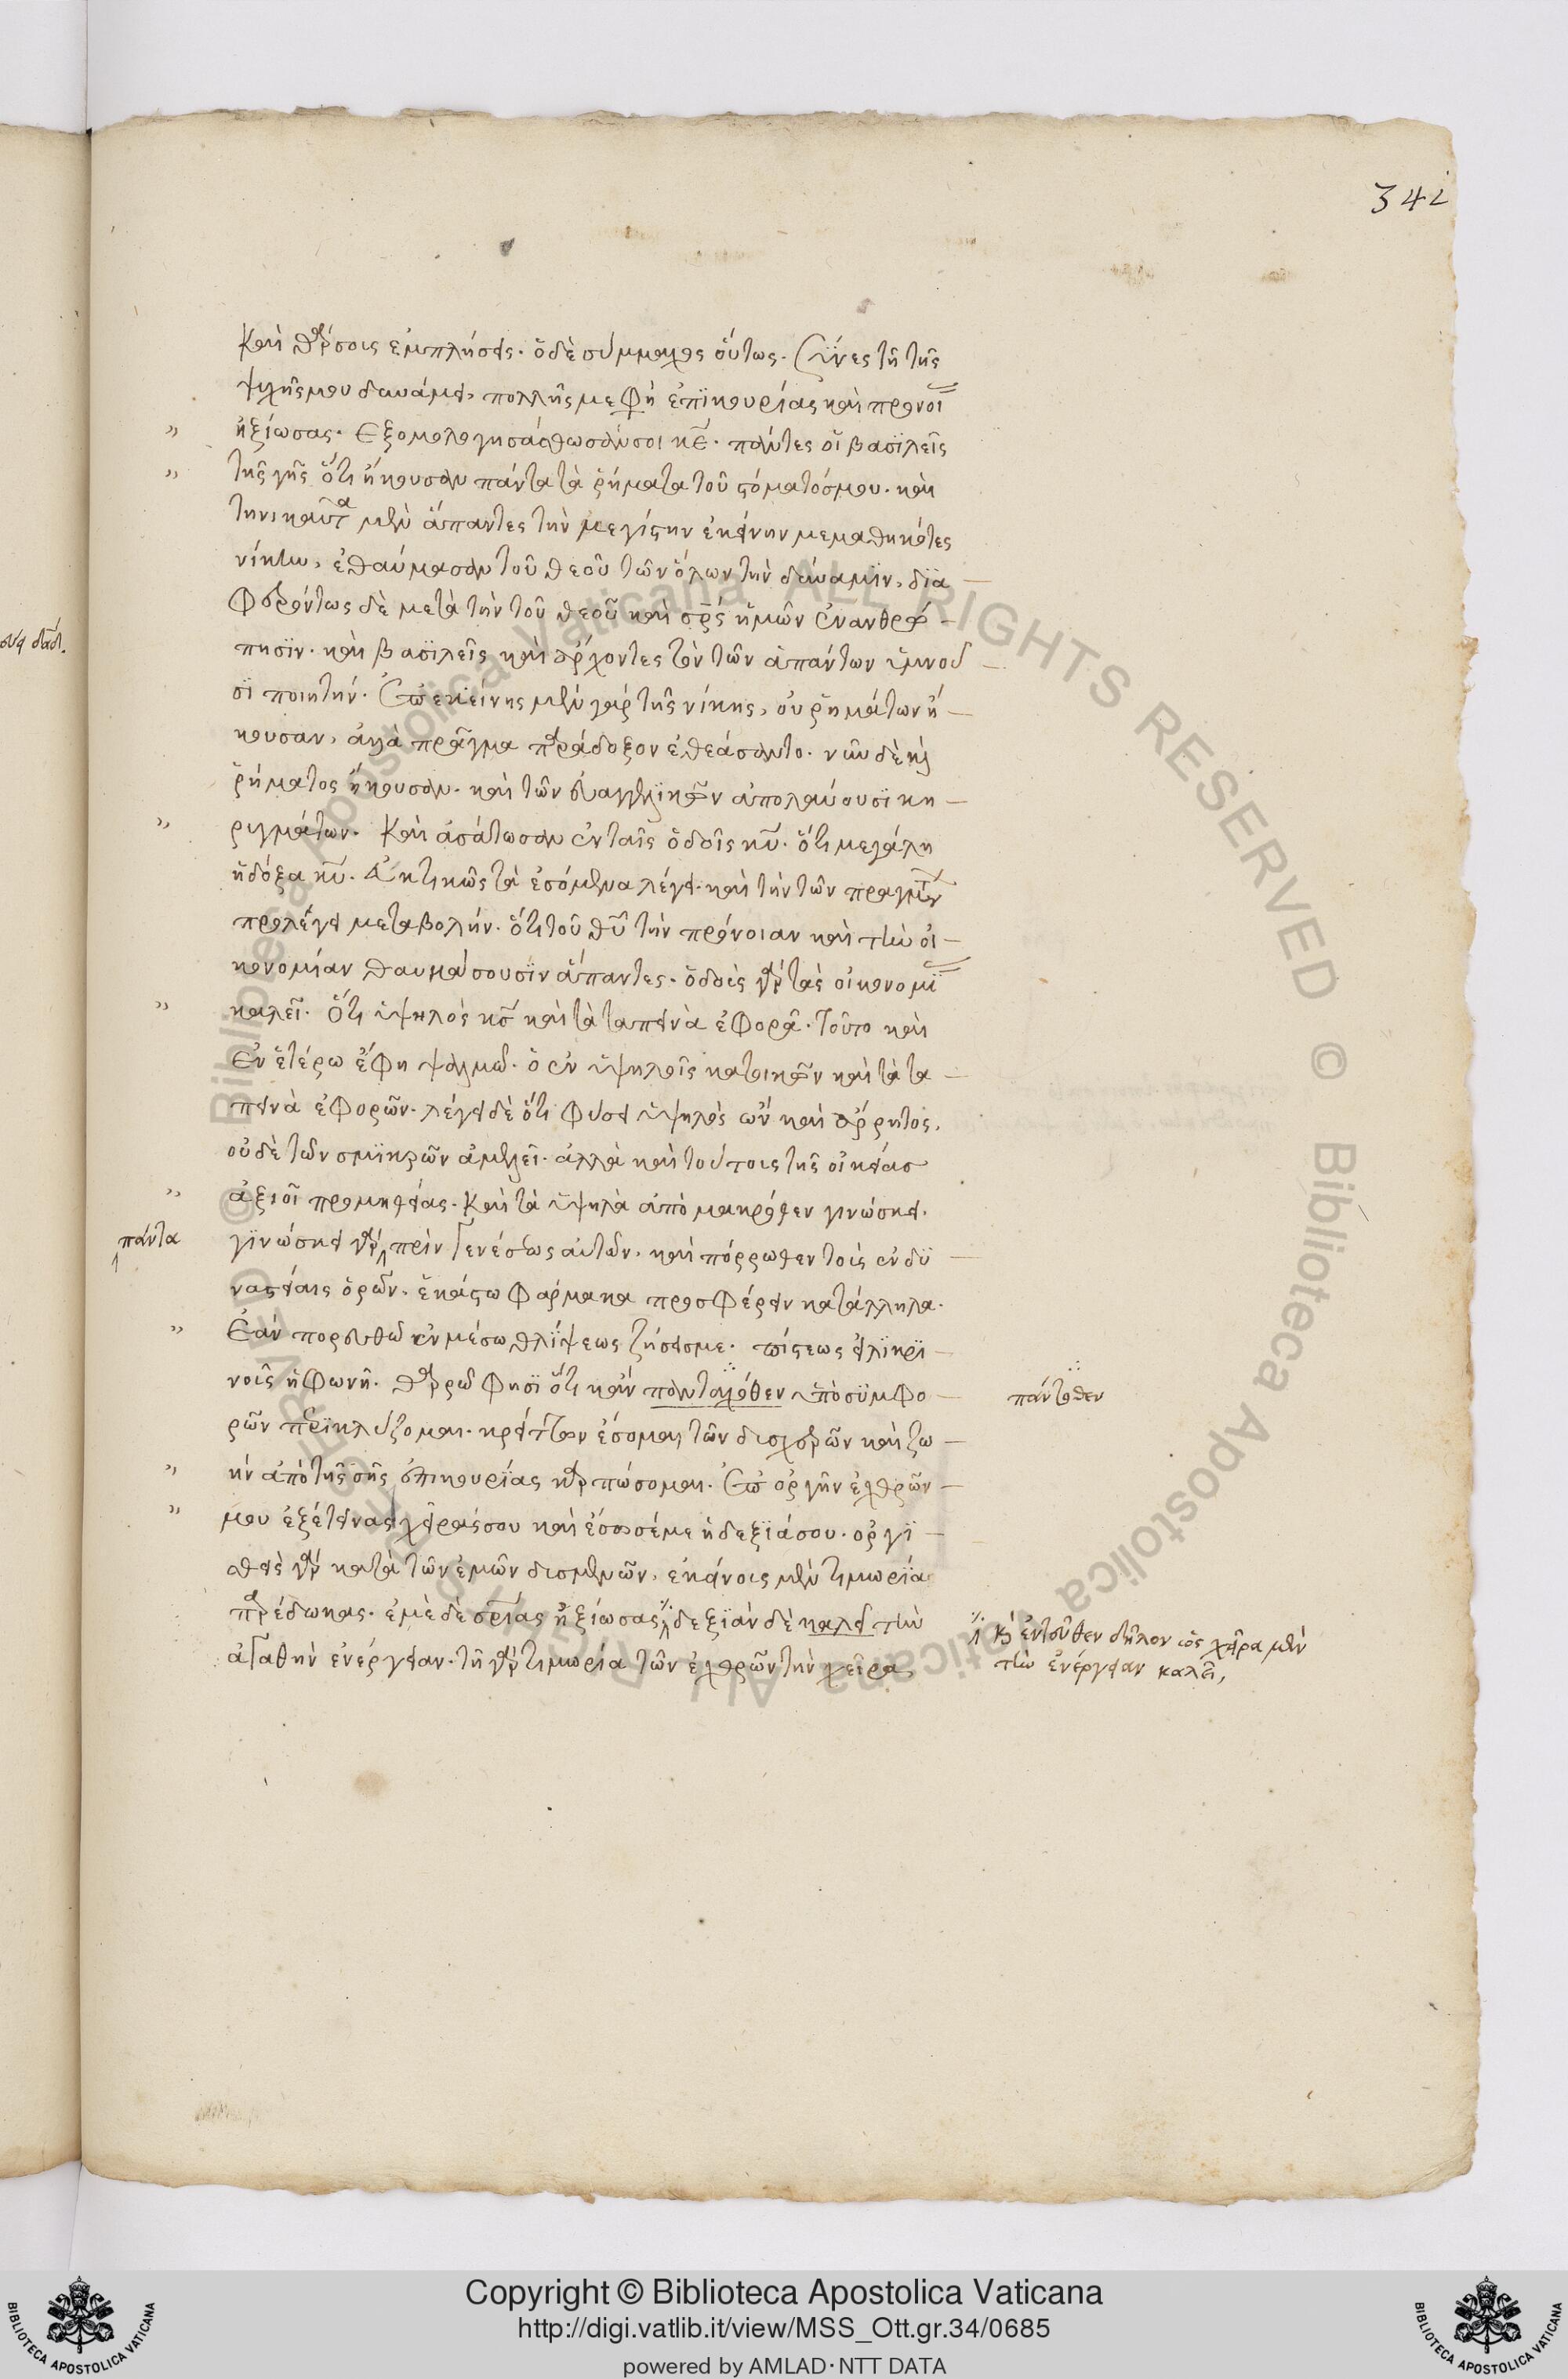 342
καὶ θάρσους ἐμπλήσεις. ὁ δὲ σύμμαχος οὕτως.
ψυχῆς μου δυνάμει, πολλῆς με φη ἐπϊκουρίας καὶ προνοί
ἠξίωσας. Ἐξομολογησάσθωσάν σοι κε. πάντες οἱ βασϊλεῖς
τῆς γῆς ὅτι ἤκουσαν πάντα τὰ ῥήματα τοῦ στόματός μου. καὶ
τηνικαῦτα μὲν ἅπαντες τὴν μεγίστην ἐκείνην μεμαθηκότες
νίκην, ἐθαύμασαν τοῦ θεοῦ τῶν ὅλων τὴν δύναμϊν, δϊα
φερόντως δὲ μετὰ τὴν τοῦ θεοῦ καὶ σρς ἡμῶν ἐνανθρώ
πησϊν. καὶ βασϊλεῖς καὶ ἄρχοντες τὸν τῶν ἁπάντων ὑμνοῦ
σϊ ποιητήν. Ἐπ ἐκείνης μὲν γὰρ τῆς νίκης, οὐ ῥημάτων ἤ
κουσαν, ἀλλὰ πρᾶγμα παράδοξον ἐθεάσαντο. νῦν δὲ καὶ
ῥήματος ἤκουσαν. καὶ τῶν εὐαγγελϊκῶν ἀπολαύουσϊ κη
ρυγμάτων. Καὶ ἀσάτωσαν ἐν ταῖς ὁδοῖς κυ. ὅτι μεγάλη
ἡ δόξα κυ. τὰ ἐσόμενα λέγει. καὶ τὴν τῶν πραγμάτων
προλέγει μεταβολήν. ὅτι τοῦ θυ τὴν πρόνοιαν καὶ τὴν οἰ
κονομίαν θαυμάσουσϊν ἅπαντες. ὁδοὺς γὰρ τὰς οἰκονομϊ
καλεῖ. Ὅτι ὑψηλὸς κς καὶ τὰ ταπεινὰ ἐφορᾷ. τοῦτο καὶ
ἐν ἑτέρω ἔφη ψαλμῶ. ὁ ἐν ὑψηλοῖς κατοικῶν καὶ τὰ τα
πεινὰ ἐφορῶν. λέγει δὲ ὅτι φύσει ὑψηλὸς ὢν καὶ ἄρρητος,
οὐδὲ τῶν σμϊκρῶν ἀμελεῖ. ἀλλὰ καὶ τούτοις τῆς οἰκείας
ἀξιοῖ προμηθείας. Καὶ τὰ ὑψηλὰ ἀπὸ μακρόθεν γινώσκει.
πάντα
γϊνώσκει γὰρ πρὶν γενέσεως αὐτῶν, καὶ πόρρωθεν τοὺς ἐν δϋ
ναστείαις ὁρῶν. ἑκάστω φάρμακα προσφέρειν κατάλληλα.
Ἐὰν πορευθῶ ἐν μέσω θλίψεως ζήσεις με. πίστεως εἰλϊκρϊ
νοῦς ἡ φωνή. θαρρῶ φησϊ ὅτι κἂν πανταχόθεν ὑπὸ σϋμφο
πάντοθεν
ρῶν περϊκλύζομαι. κρείττων ἔσομαι τῶν δυσχερῶν καὶ ζω
ὴν ἀπὸ τῆς σῆς ἐπικουρίας καρπώσομαι. Ἐπ ὀργὴν ἐχθρῶν
μου ἐξέτεινας χεῖρας σου καὶ ἔσωσέ με ἡ δεξϊά σου. ὀργϊ
σθεὶς γὰρ κατὰ τῶν ἐμῶν δυσμενῶν, ἐκείνους μὲν τιμωρία
παρέδωκας. ἐμὲ δὲ σρίας ἠξίωσας δεξϊὰν δὲ καλεῖ τὴν
ἀγαθὴν ἐνέργειαν. τῇ γὰρ τιμωρία τῶν ἐχθρῶν τὴν χεῖρα
κ ἐντεῦθεν δῆλον ὡς χεῖρα μὲν
τὴν ἐνέργειαν καλεῖ,
© Biblioteca Apostolica Vaticana ALL RIGHTS RESERVED © Biblioteca Apostolica Vaticana ALL RIGHTS RESERVED
BIBLIOTECA APOSTOLICA VATICANA
Copyright © Biblioteca Apostolica Vaticana
http://digi.vatlib.it/view/MSS_Ott.gr.34/0685
powered by AMLAD·NTT DATA
BIBLIOTECA APOSTOLICA VATICANA